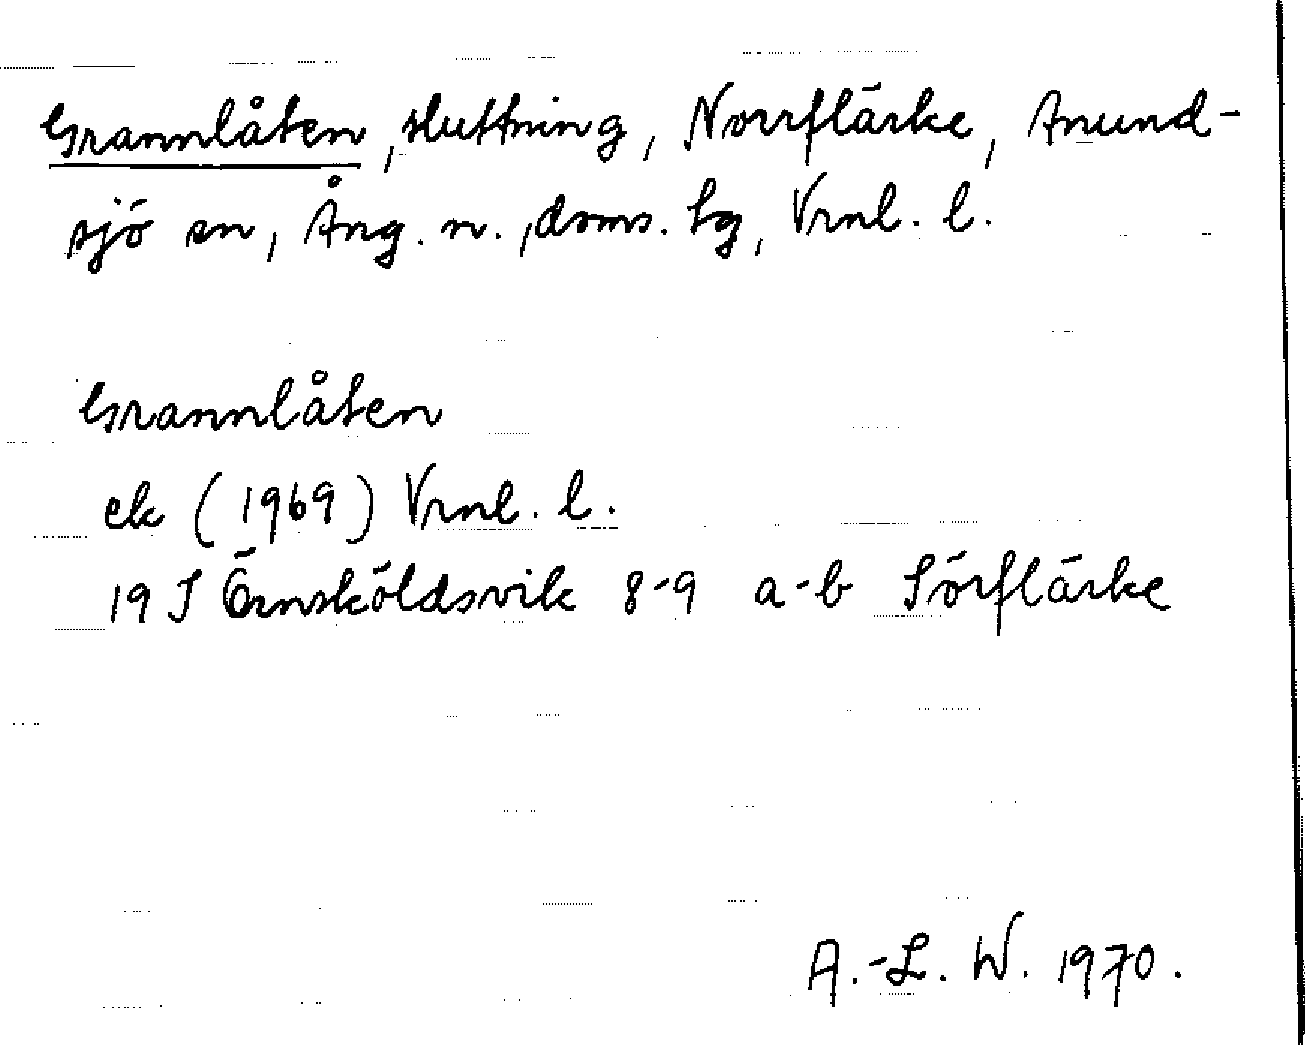 Grannlåten, sluttning, Norrflärke, Anund-
sjö sn, Ång. n., doms. lg, Vrnl. l.
Grannlåten
ek (1969) Vrnl. l.
19 J Örnsköldsvik 8-9 a-b Sörflärke
A.-L. W. 1970.